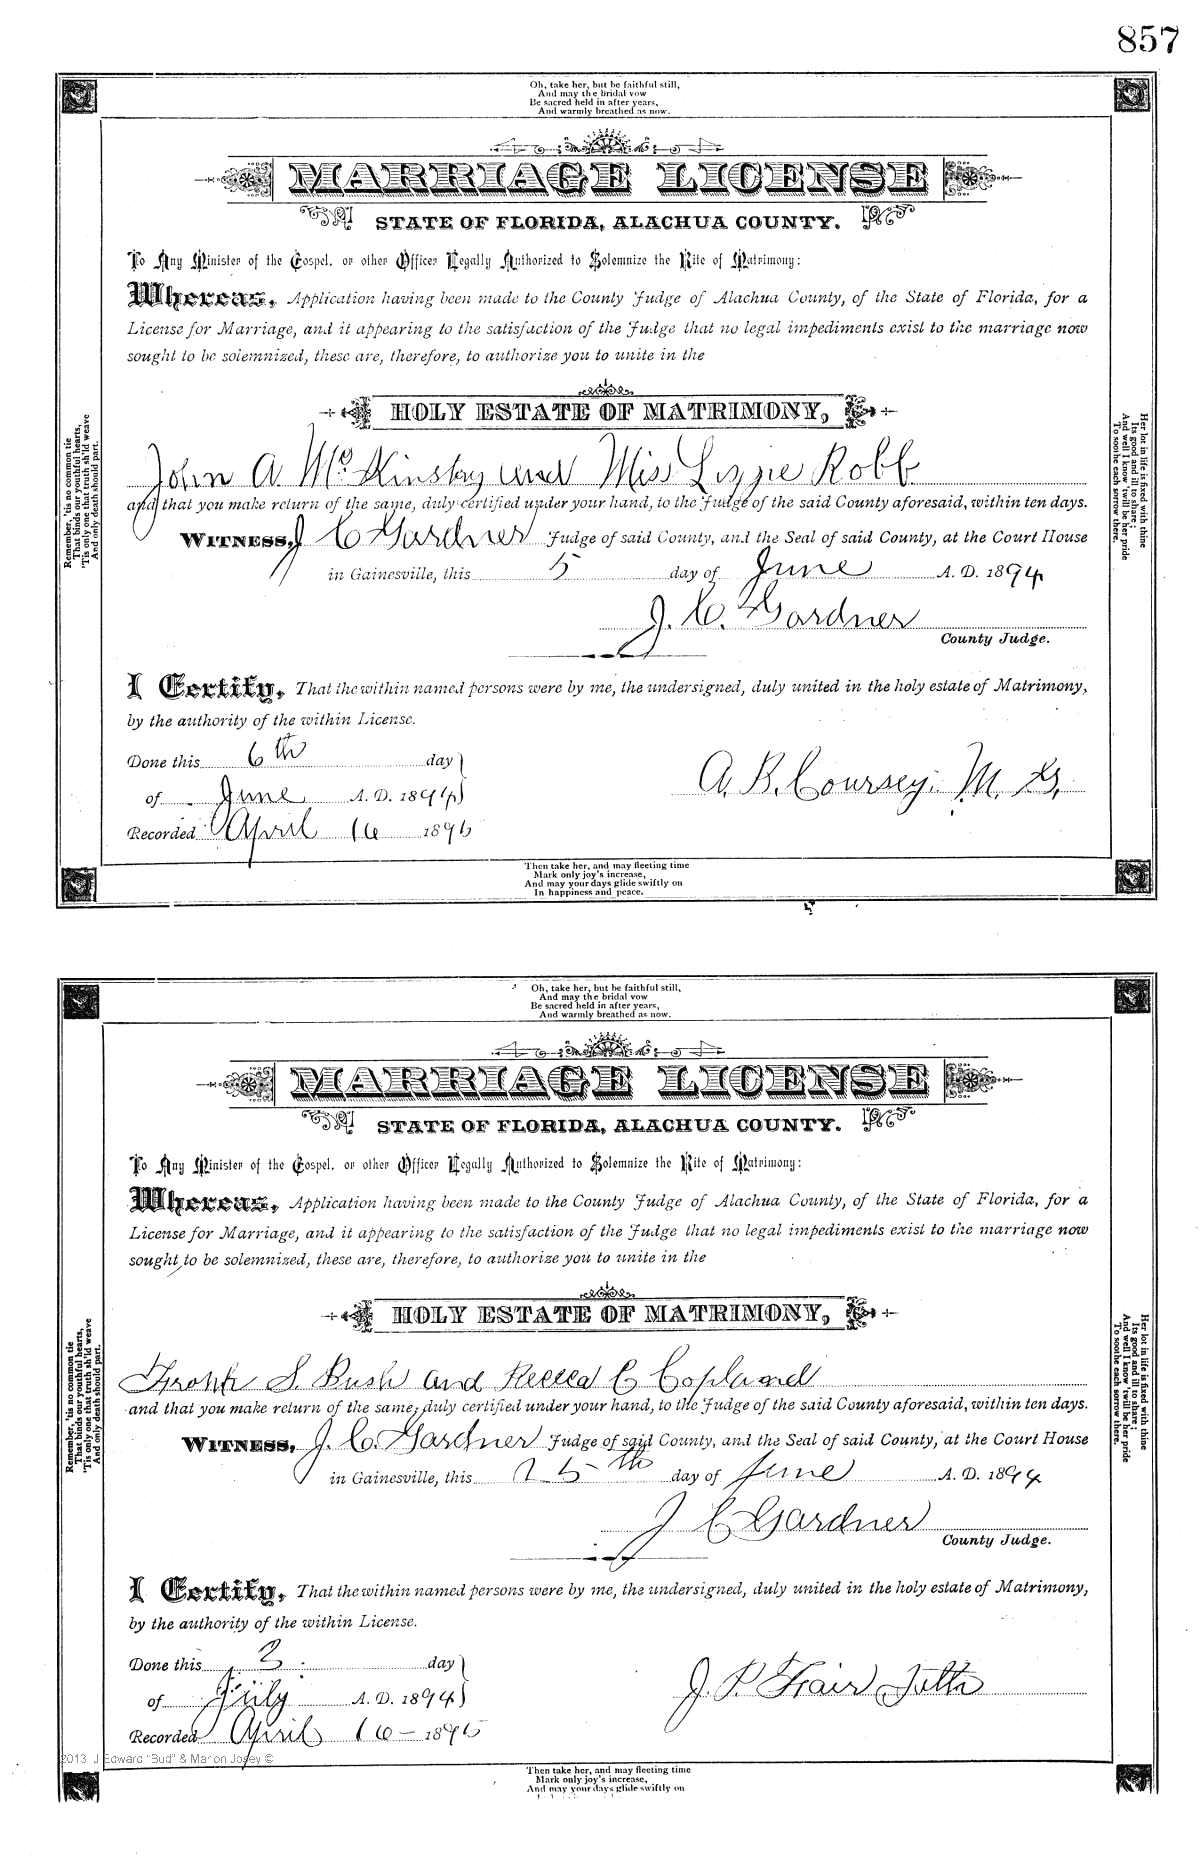 857
Oh, take her, but be faithful still,
And may the bridal vow
Be sacred held in after years,
And warmly breathed as now.
MARRIAGE LICENSE
STATE OF FLORIDA, ALACHUA COUNTY.
To Any Minister of the Gospel, or other Officer Legally Authorized to Solemnize the Rite of Matrimony:
Whereas, Application having been made to the County Judge of Alachua County, of the State of Florida, for a
License for Marriage, and it appearing to the satisfaction of the Judge that no legal impediments exist to the marriage now
sought to be solemnized, these are, therefore, to authorize you to unite in the
HOLY ESTATE OF MATRIMONY,
John A McKinstry and Miss Lizzie Robb
and that you make return of the same, duly certified under your hand, to the Judge of the said County aforesaid, within ten days.
WITNESS, J C Gardner Judge of said County, and the Seal of said County, at the Court House
in Gainesville, this 5 day of June A. D. 1894
J. C. Gardner
County Judge.
I Certify, That the within named persons were by me, the undersigned, duly united in the holy estate of Matrimony,
by the authority of the within License.
Done this 6th day
of June A. D. 1894
A. B. Coursey. M. G.
Recorded April 16 1895
Remember, 'tis no common tie
That binds our youthful hearts,
'Tis only one that truth sh'ld weave
And only death should part.
Her lot in life is fixed with thine
Its good and ill to share;
And well I know 'twill be her pride
To soothe each sorrow there.
Then take her, and may fleeting time
Mark only joy's increase,
And may your days glide swiftly on
In happiness and peace.
Oh, take her, but be faithful still,
And may the bridal vow
Be sacred held in after years,
And warmly breathed as now.
MARRIAGE LICENSE
STATE OF FLORIDA, ALACHUA COUNTY.
To Any Minister of the Gospel, or other Officer Legally Authorized to Solemnize the Rite of Matrimony:
Whereas, Application having been made to the County Judge of Alachua County, of the State of Florida, for a
License for Marriage, and it appearing to the satisfaction of the Judge that no legal impediments exist to the marriage now
sought to be solemnized, these are, therefore, to authorize you to unite in the
HOLY ESTATE OF MATRIMONY,
Frank S. Bush and C Copland
and that you make return of the same, duly certified under your hand, to the Judge of the said County aforesaid, within ten days.
WITNESS, J. C. Gardner Judge of said County, and the Seal of said County, at the Court House
in Gainesville, this 25th day of June A. D. 1894
J C Gardner
County Judge.
I Certify, That the within named persons were by me, the undersigned, duly united in the holy estate of Matrimony,
by the authority of the within License.
Done this 3 day
of July A. D. 1894
J. P.
Recorded April 16 - 1895
Remember, 'tis no common tie
That binds our youthful hearts,
'Tis only one that truth sh'ld weave
And only death should part.
Her lot in life is fixed with thine
Its good and ill to share;
And well I know 'twill be her pride
To soothe each sorrow there.
2013 J Edward "Bud" & Marion Josey ©
Then take her, and may fleeting time
Mark only joy's increase,
And may your days glide swiftly on